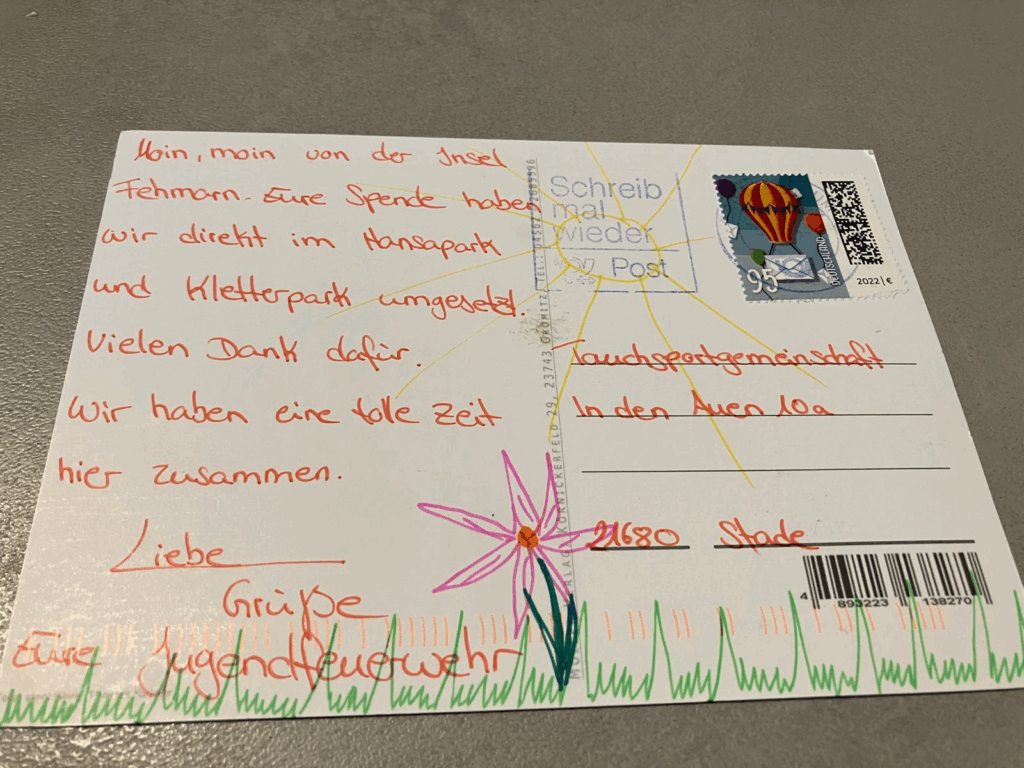 Moin, moin von der Insel
Fehmarn. Eure Spende haben
wir direkt im Hansapark
und Kletterpark umgesetzt.
Vielen Dank dafür.
Wir haben eine tolle Zeit
hier zusammen.
Liebe
Grüße
Eure Jugendfeuerwehr
Schreib
mal
wieder
Post
95
DEUTSCHLAND
2022 | €
Tauchsportgemeinschaft
In den Auen 10a
21680 Stade
4 893223 138270
KÖRNICKERFELD 29, 23743 GRÖMITZ, TEL.: